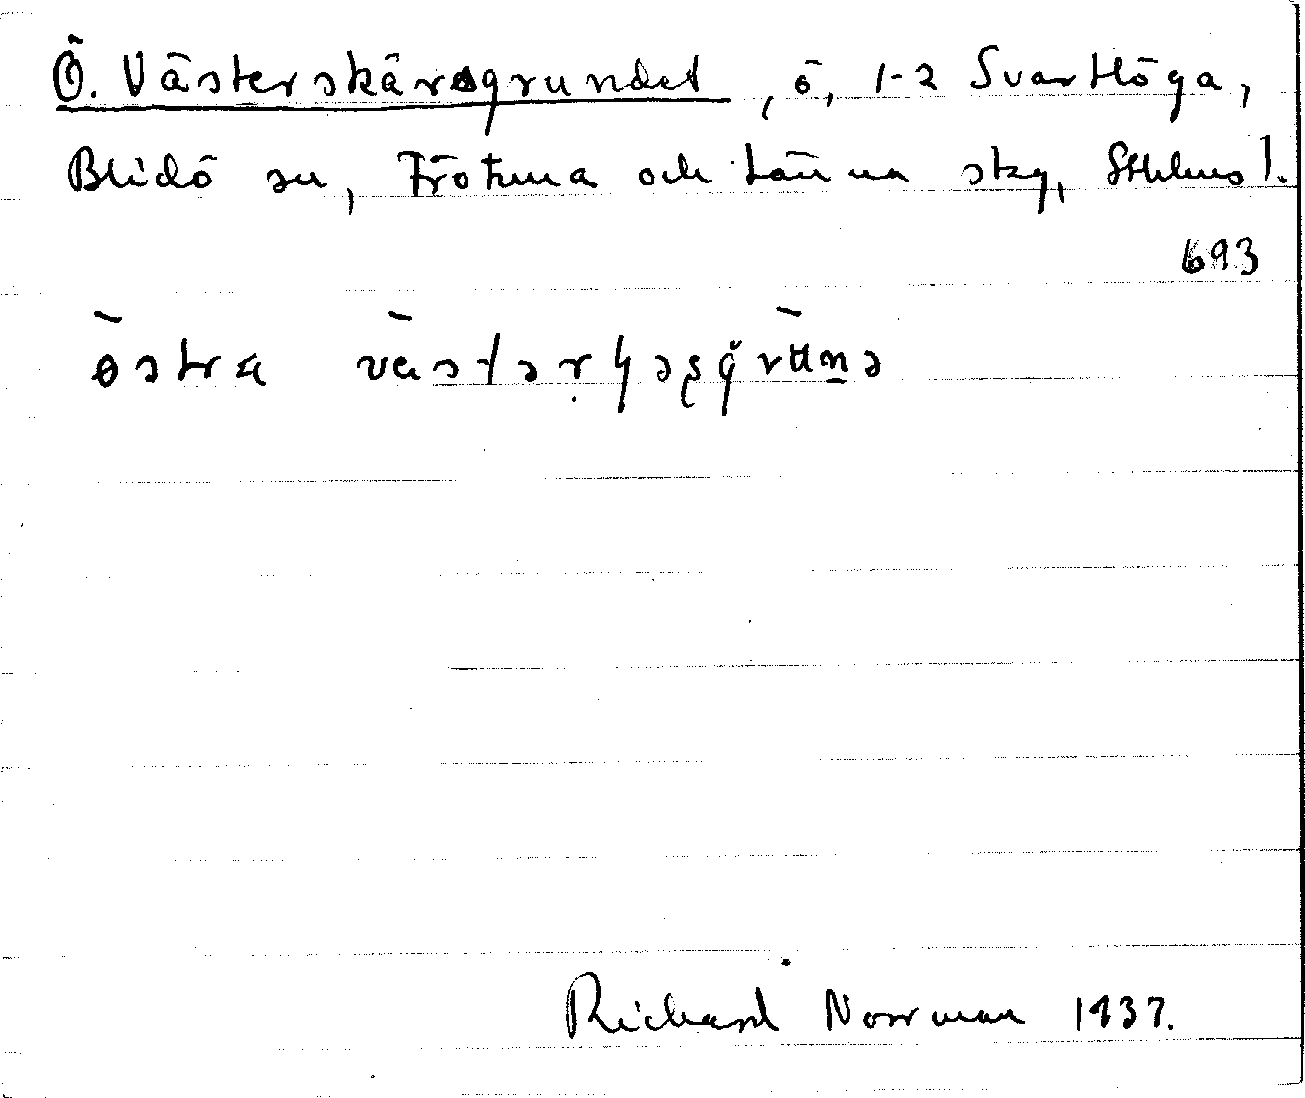 Ö. Västerskärsgrundet, ö, 1-2 Svartlöga,
Blidö sn, Frötuna och Länna skg, Sthlms l.
693
östra
Richard Norrman 1937.